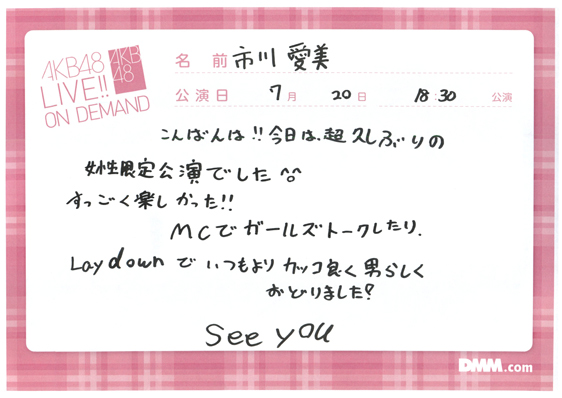 AKB48
LIVE!!
ON DEMAND
AKB
48
名 前 市川 愛美
公演日 7月 20日 18:30 公演
こんばんは!!今日は、超久しぶりの
女性限定公演でした^o^
すっごく楽しかった!!
MCでガールズトークしたり、
Lay downでいつもよりカッコ良く男らしく
おどりました?
See you
DMM.com